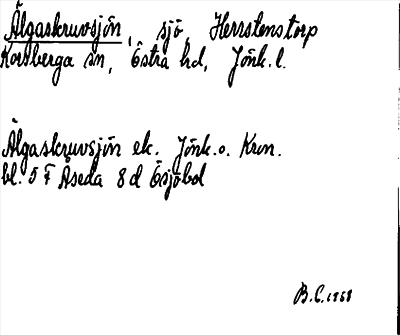 Älgaskruvsjön, sjö, Herrstenstorp
Korsberga sn, Östra hd, Jönk. l.
Älgaskruvsjön ek. Jönk. o. Kron.
bl. 5 F Åseda 8 d Ösjöbol
B.C. 1968